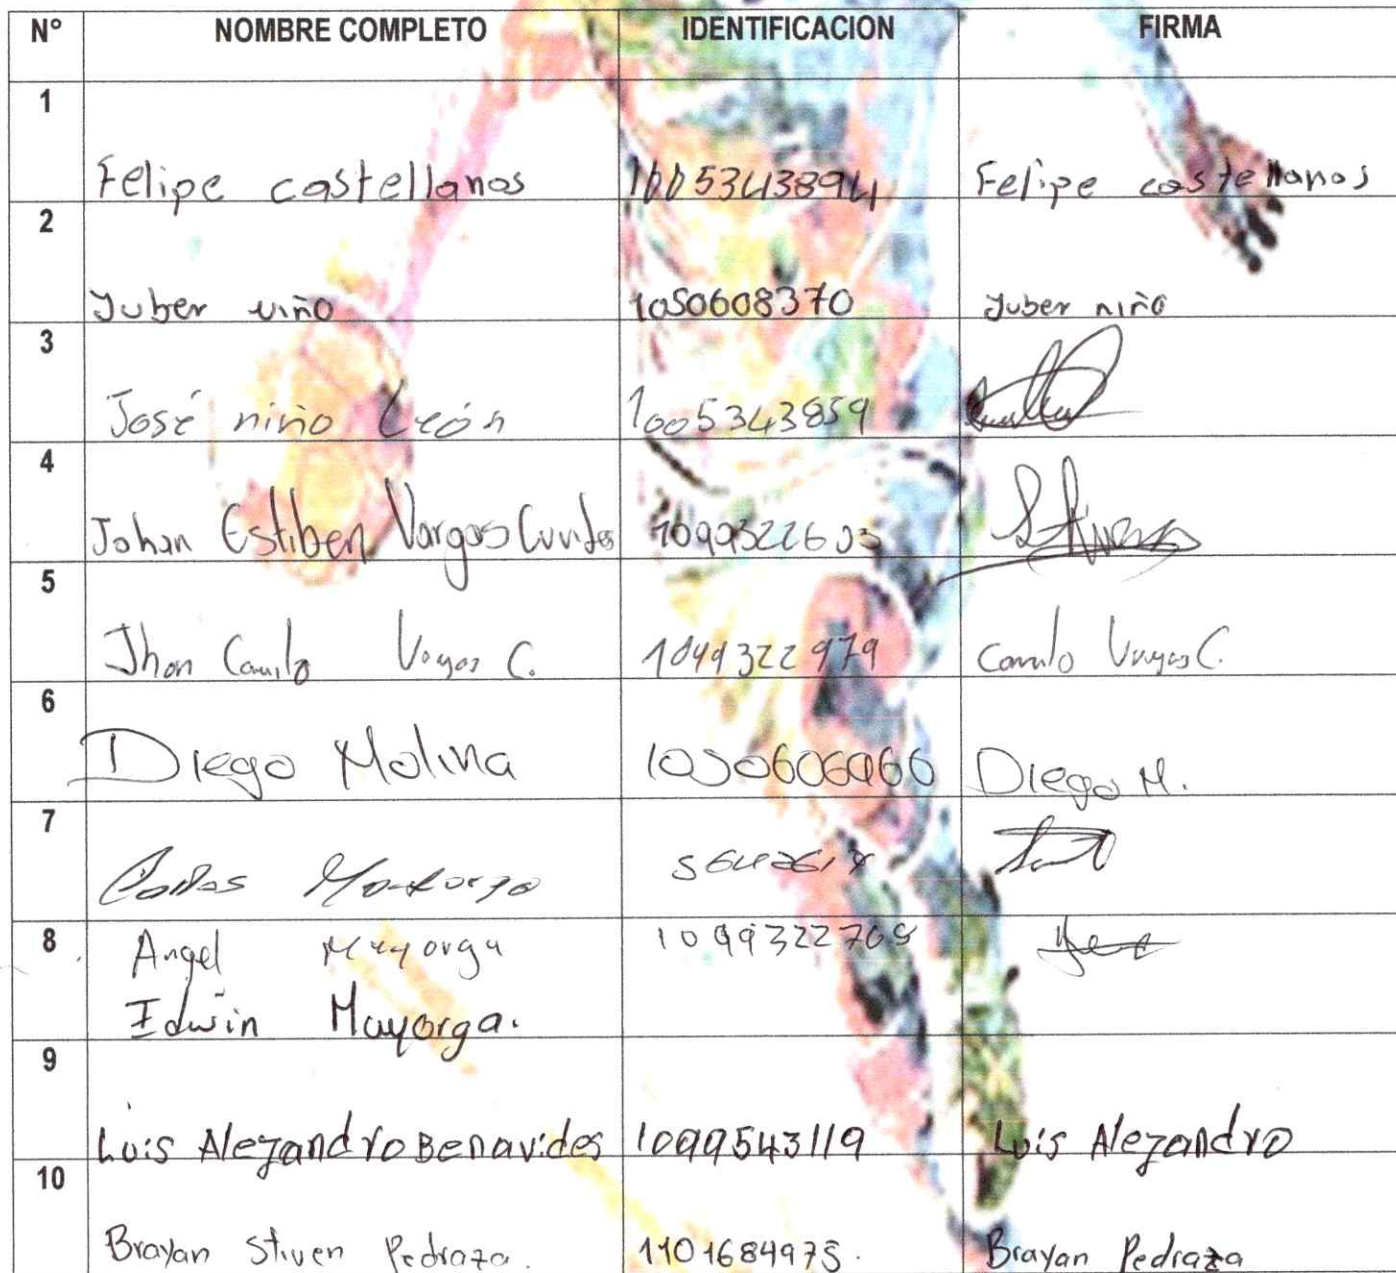 N° NOMBRE COMPLETO IDENTIFICACION FIRMA
1 Felipe castellanos 1005343894 Felipe castellanos
2 Yuber niño 1050608370 Yuber niño
3 José niño León 1005343859
4 Johan Estiben Vargas 1099322603
5 Jhon Camilo Vargas C. 1099322979 Camilo Vargas C.
6 Diego Molina Diego M.
7 Carlos
8 Angel Mayorga
Edwin Mayorga.
9 Luis Alejandro Benavides 1099543119 Luis Alejandro
10 Brayan Stiven Pedraza. 1101684975. Brayan Pedraza